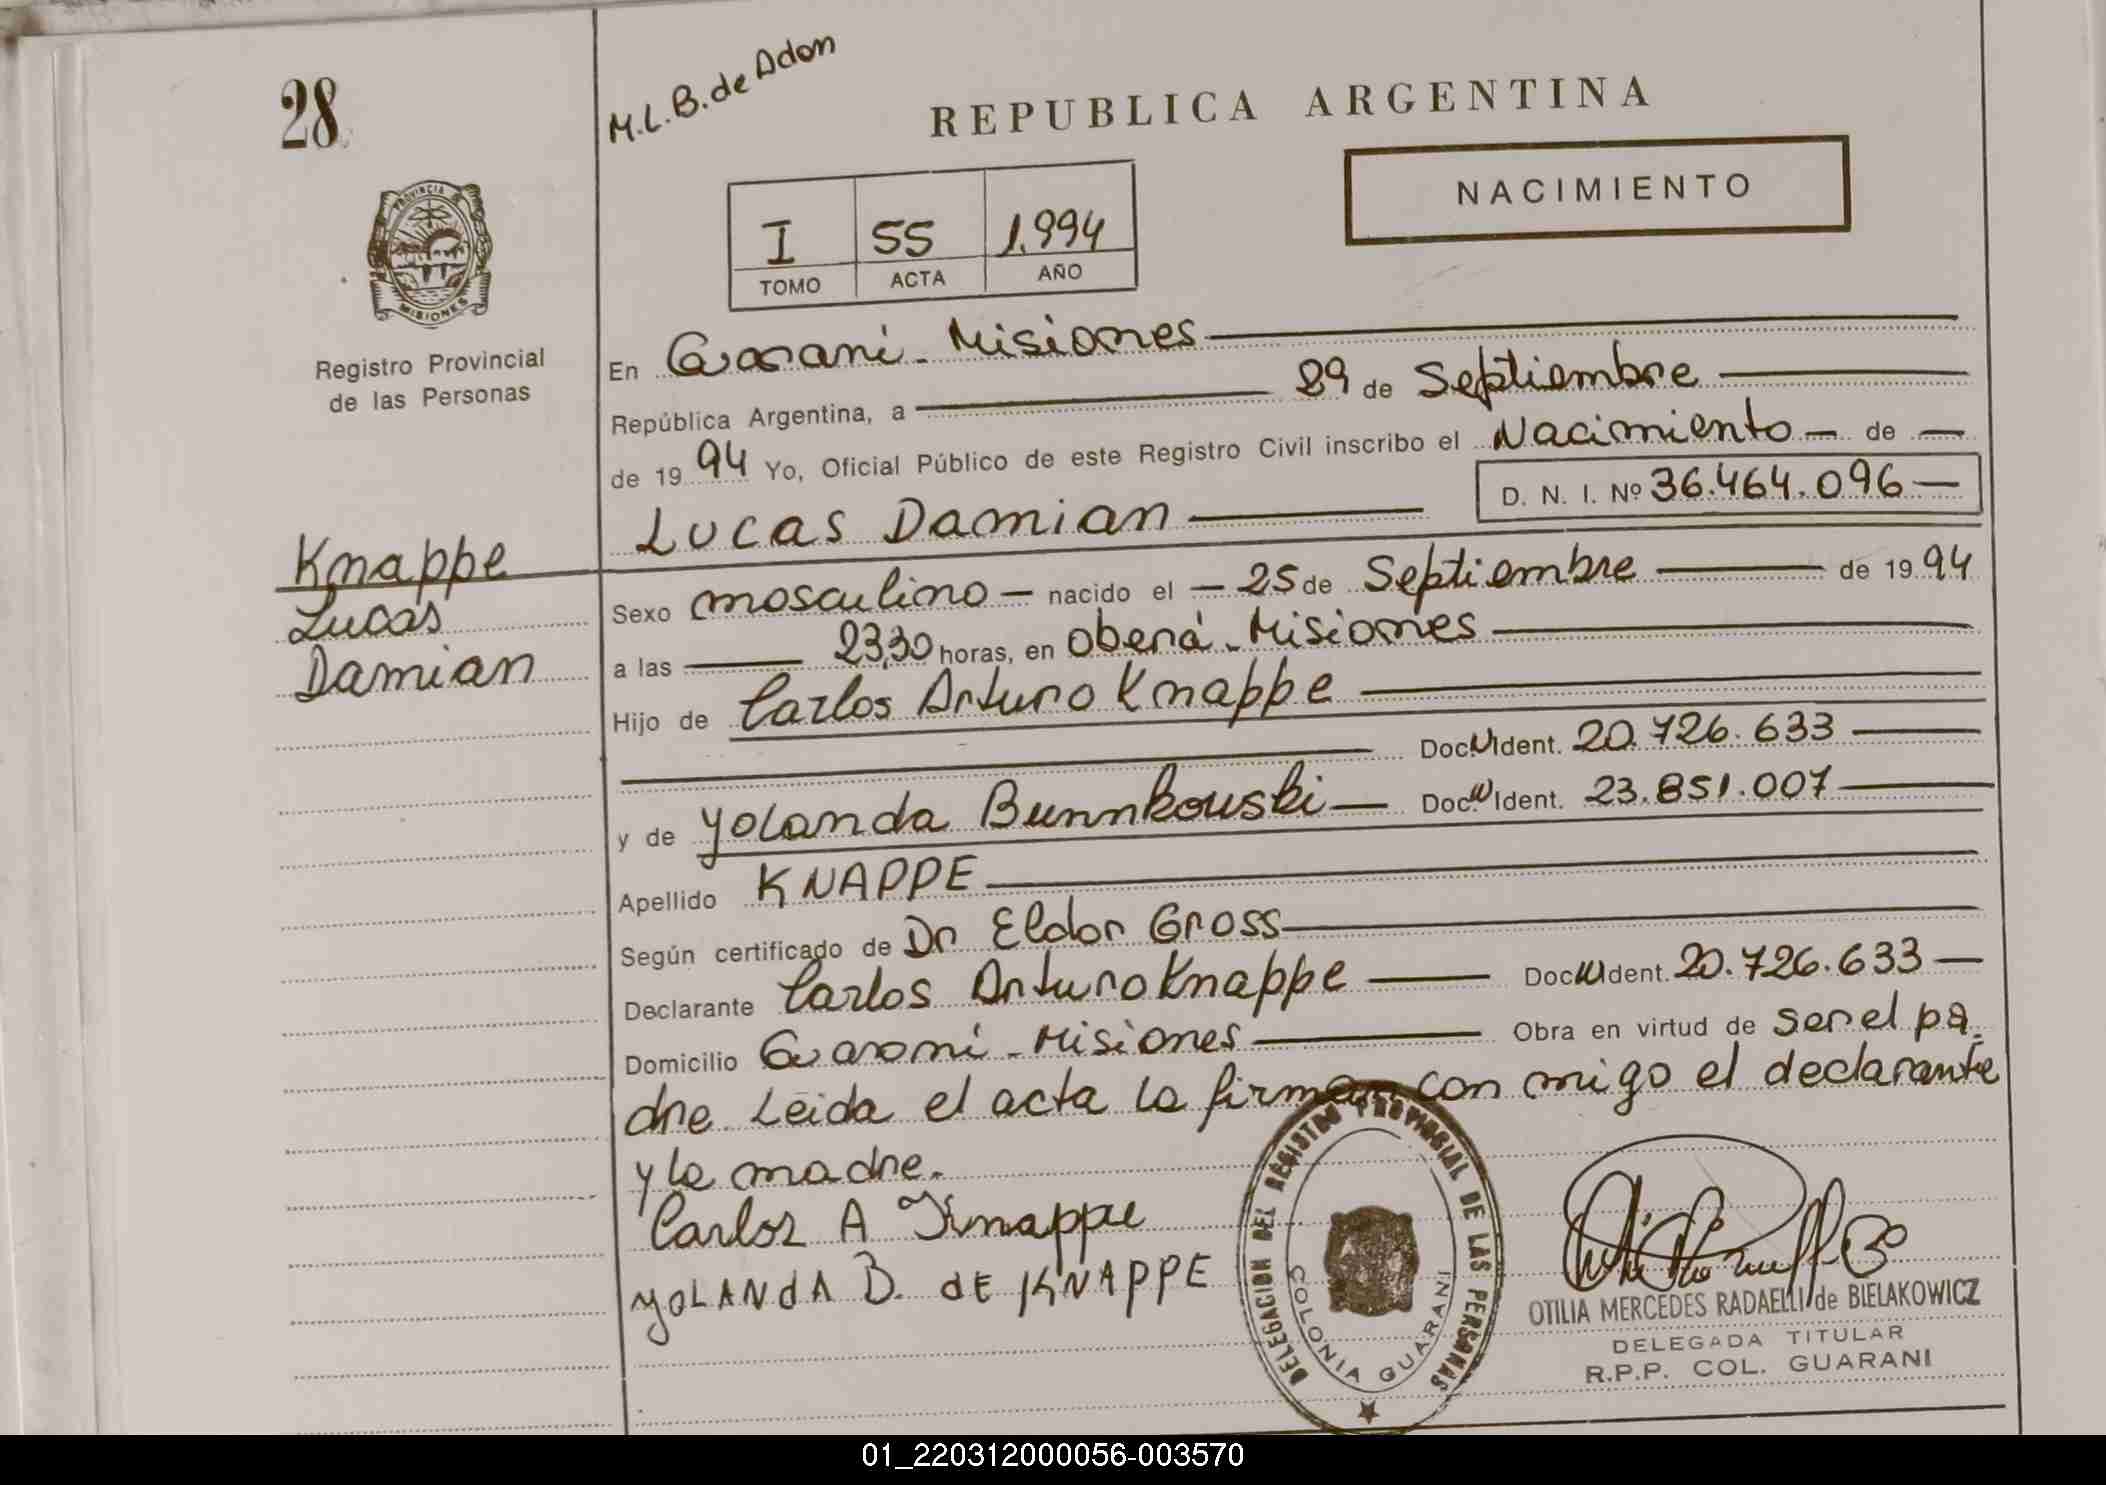 28
M.L.B. de Adon
REPUBLICA ARGENTINA
NACIMIENTO
I 55 1.994
TOMO ACTA AÑO
PROVINCIA
MISIONES
Registro Provincial
de las Personas
Knappe
Lucas
Damian
En Guarani - Misiones
República Argentina, a 29 de Septiembre
de 1994 Yo, Oficial Público de este Registro Civil inscribo el Nacimiento de
D. N. I. Nº 36.464.096
Lucas Damian
Sexo masculino nacido el 25 de Septiembre de 1994
a las 23,30 horas, en Oberá - Misiones
Hijo de Carlos Arturo Knappe
Doc. Ident. 20.726.633
y de Yolanda Bunnkowski Doc. Ident. 23.851.007
Apellido KNAPPE
Según certificado de Dr Eldor Gross
Declarante Carlos Arturo Knappe Doc. Ident. 20.726.633
Domicilio Guarani - Misiones Obra en virtud de ser el pa-
dre. Leida el acta la firman con migo el declarante
y la madre.
Carlos A Knappe
YOLANDA B. dE KNAPPE
DELEGACION DEL REGISTRO PROVINCIAL DE LAS PERSONAS
COLONIA GUARANI
OTILIA MERCEDES RADAELLI de BIELAKOWICZ
DELEGADA TITULAR
R.P.P. COL. GUARANI
01_220312000056-003570